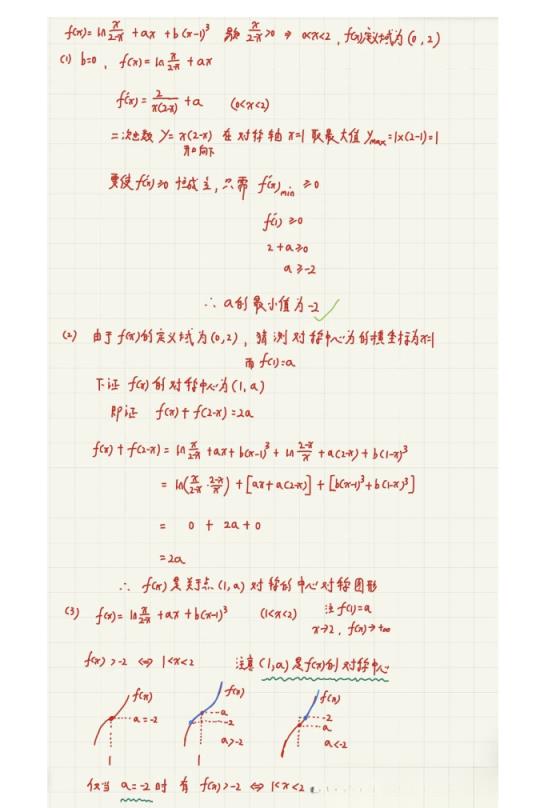 f(x)=ln x/(2-x) + ax + b(x-1)³ 则 x/(2-x)>0 ⇒ 0<x<2, f(x)定义域为(0,2)
(1) b=0, f(x)=ln x/(2-x) + ax
f'(x)= 2/(x(2-x)) + a (0<x<2)
二次函数 y=x(2-x) 在对称轴 x=1 取最大值 ymax=1×(2-1)=1
开口向下
要使f'(x)≥0 恒成立, 只需 f'(x)min ≥0
f'(1) ≥0
2+a≥0
a≥-2
∴ a的最小值为-2 ✓
(2) 由于f(x)的定义域为(0,2), 猜测对称中心为的横坐标为x=1
而 f(1)=a
下证 f(x)的对称中心为(1,a)
即证 f(x)+f(2-x)=2a
f(x)+f(2-x) = ln x/(2-x) + ax + b(x-1)³ + ln (2-x)/x + a(2-x) + b(1-x)³
= ln(x/(2-x)·(2-x)/x) + [ax+a(2-x)] + [b(x-1)³+b(1-x)³]
= 0 + 2a + 0
=2a
∴ f(x)是关于点(1,a)对称的中心对称图形
(3) f(x)=ln x/(2-x) + ax + b(x-1)³ (1<x<2) 注 f(1)=a
x→2, f(x)→+∞
f(x)>-2 ⇔ 1<x<2 注意(1,a)是f(x)的对称中心
f(x) f(x) f(x)
a=-2 a -2
-2 a
a>-2 a<-2
1 1
仅当 a=-2 时 有 f(x)>-2 ⇔ 1<x<2